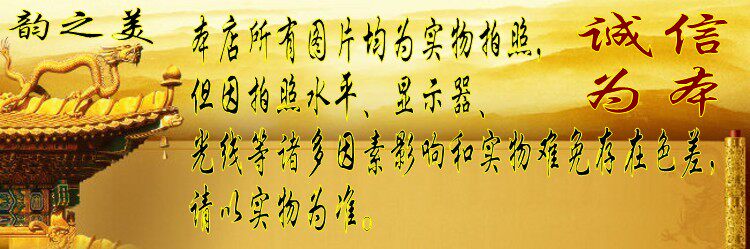 韵之美
本店所有图片均为实物拍照,
但因拍照水平、显示器、
光线等诸多因素影响和实物难免存在色差,
请以实物为准。
诚信
为本